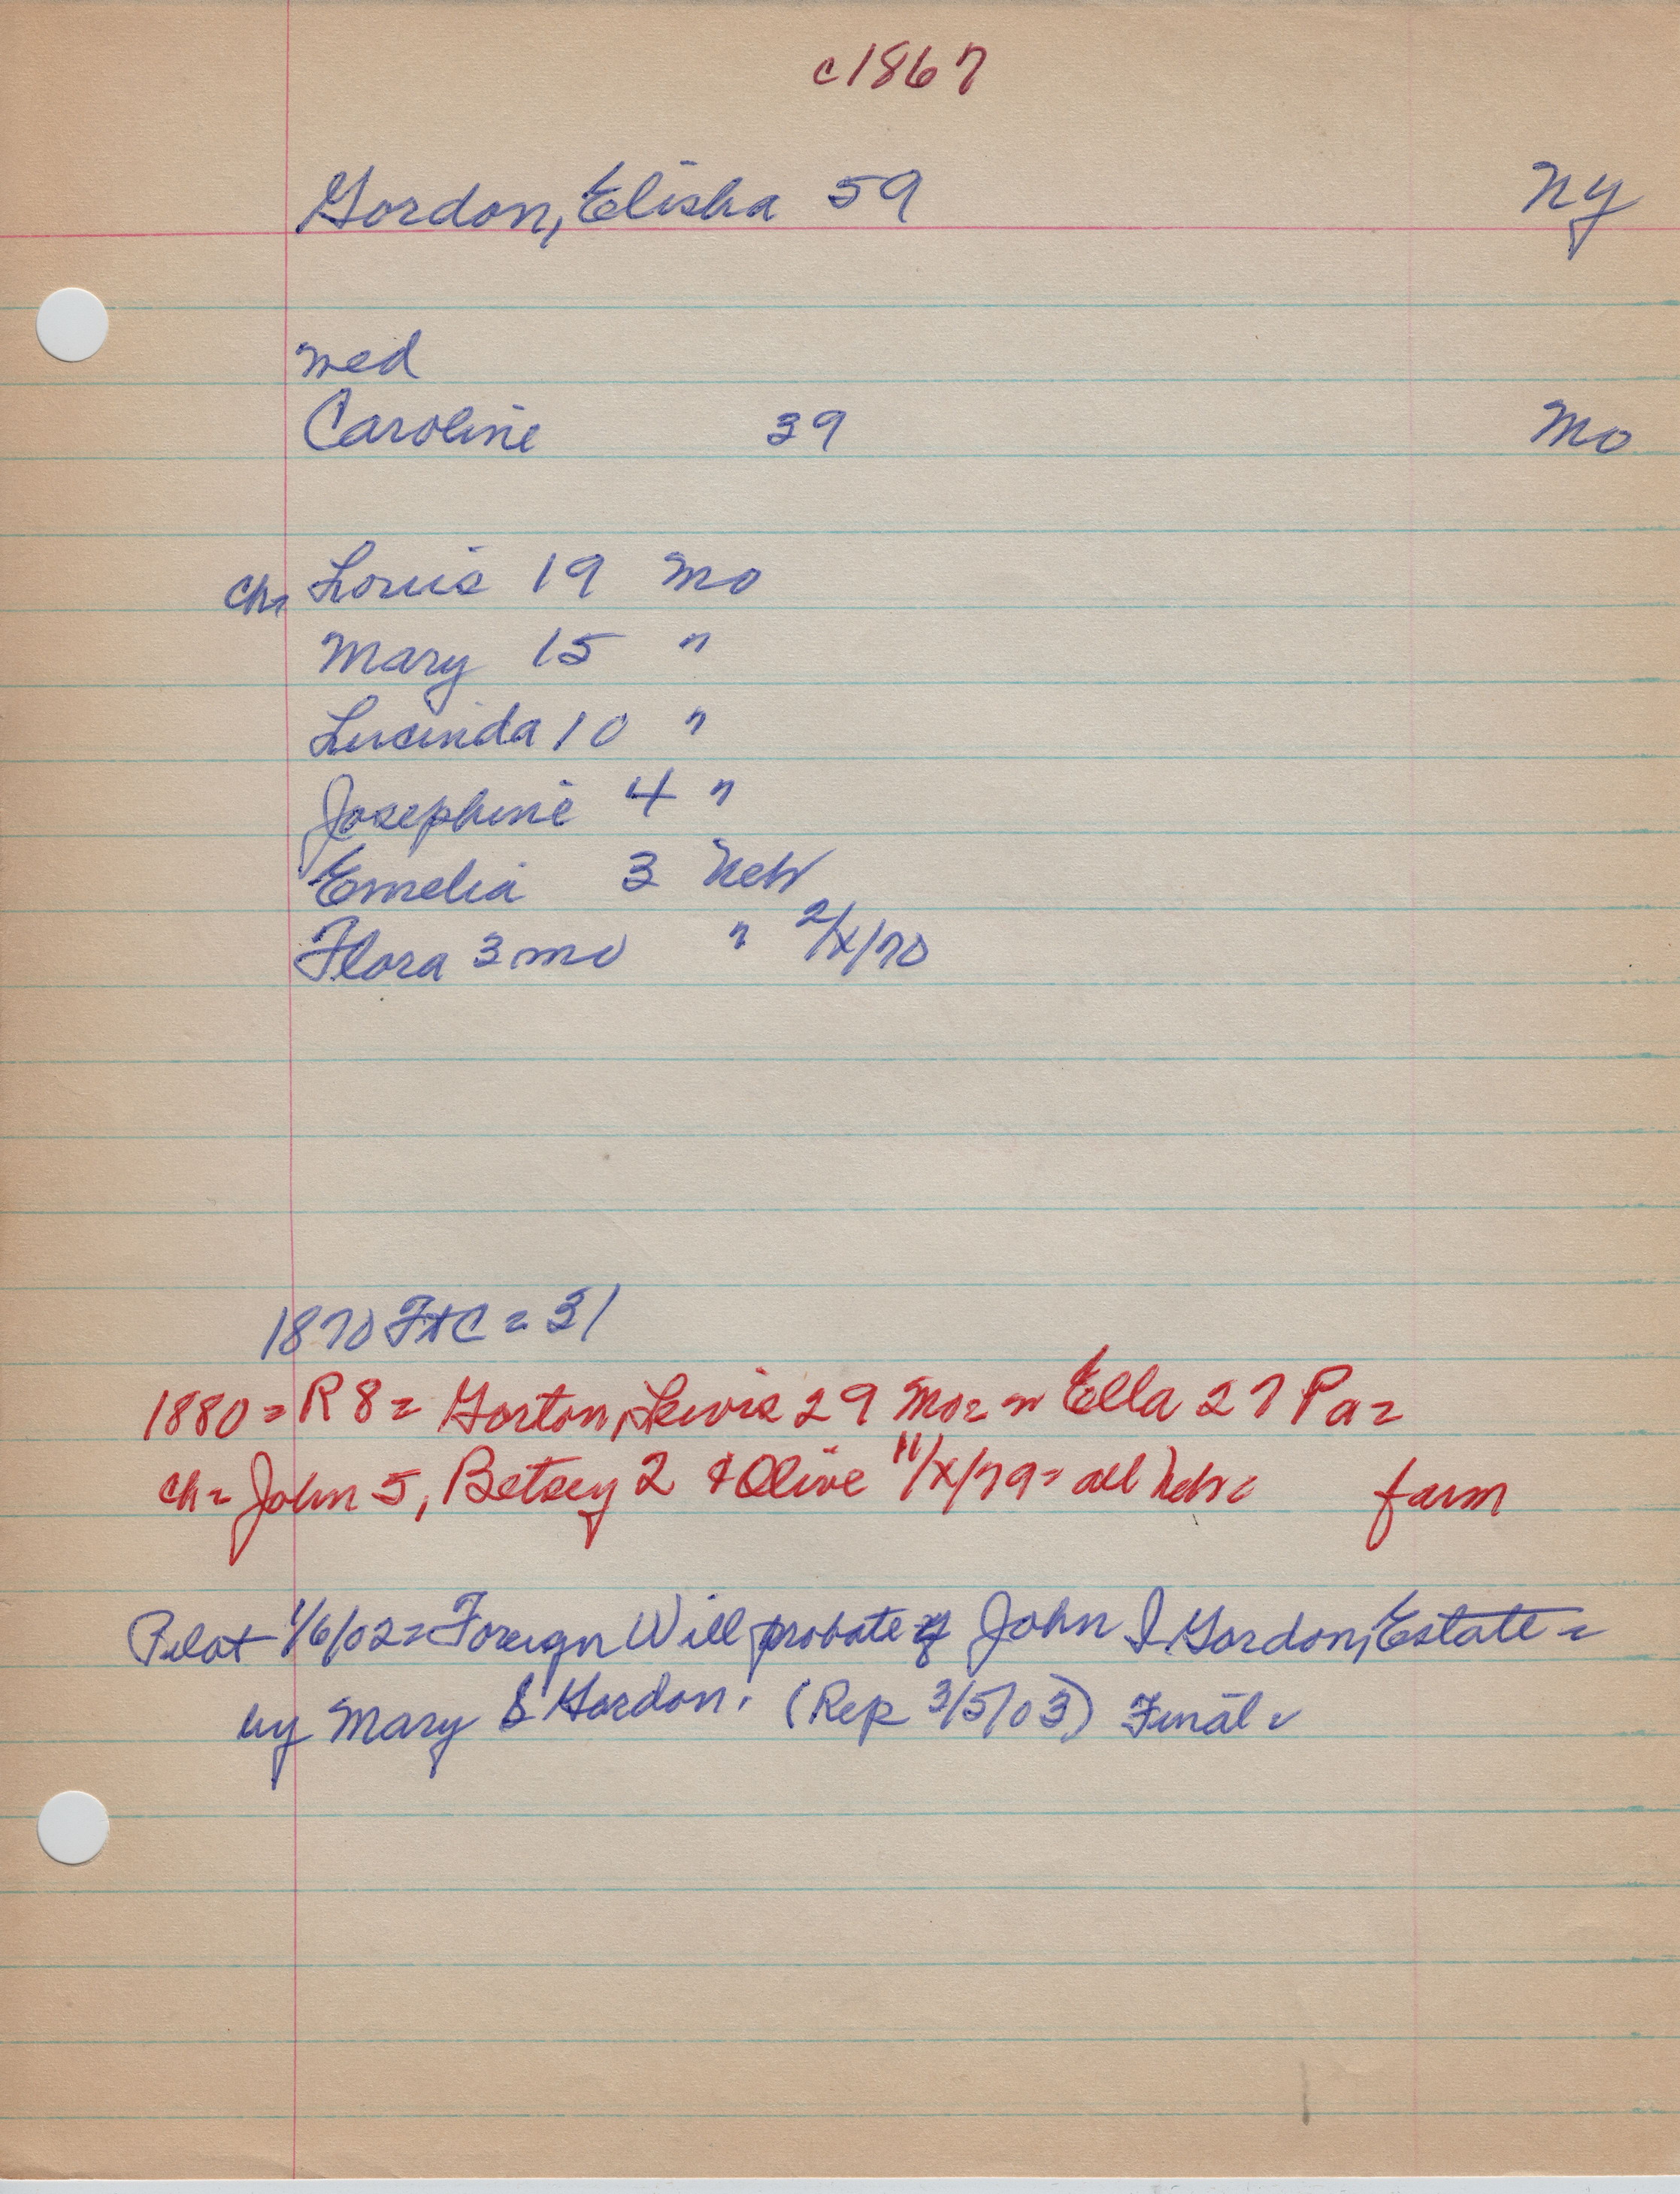 c1867
Gordon, Elisha 59 NY
med
Caroline 39 Mo
ch= Louis 19 Mo
Mary 15 "
Lucinda 10 "
Josephine 4 "
Emelia 3 Neb
Flora 3 mo " 2/x/70
1870 FtC = 31
1880 = R8 = Gorton, Lewis 29 Mo = m Ella 27 Pa =
ch = John 5, Betsey 2 & Olive 11/x/79 = all Neb = farm
Pilot 1/6/02 = Foreign Will probate of John I. Gordon, Estate =
by Mary E Gordon. (Rep 3/5/03) Final